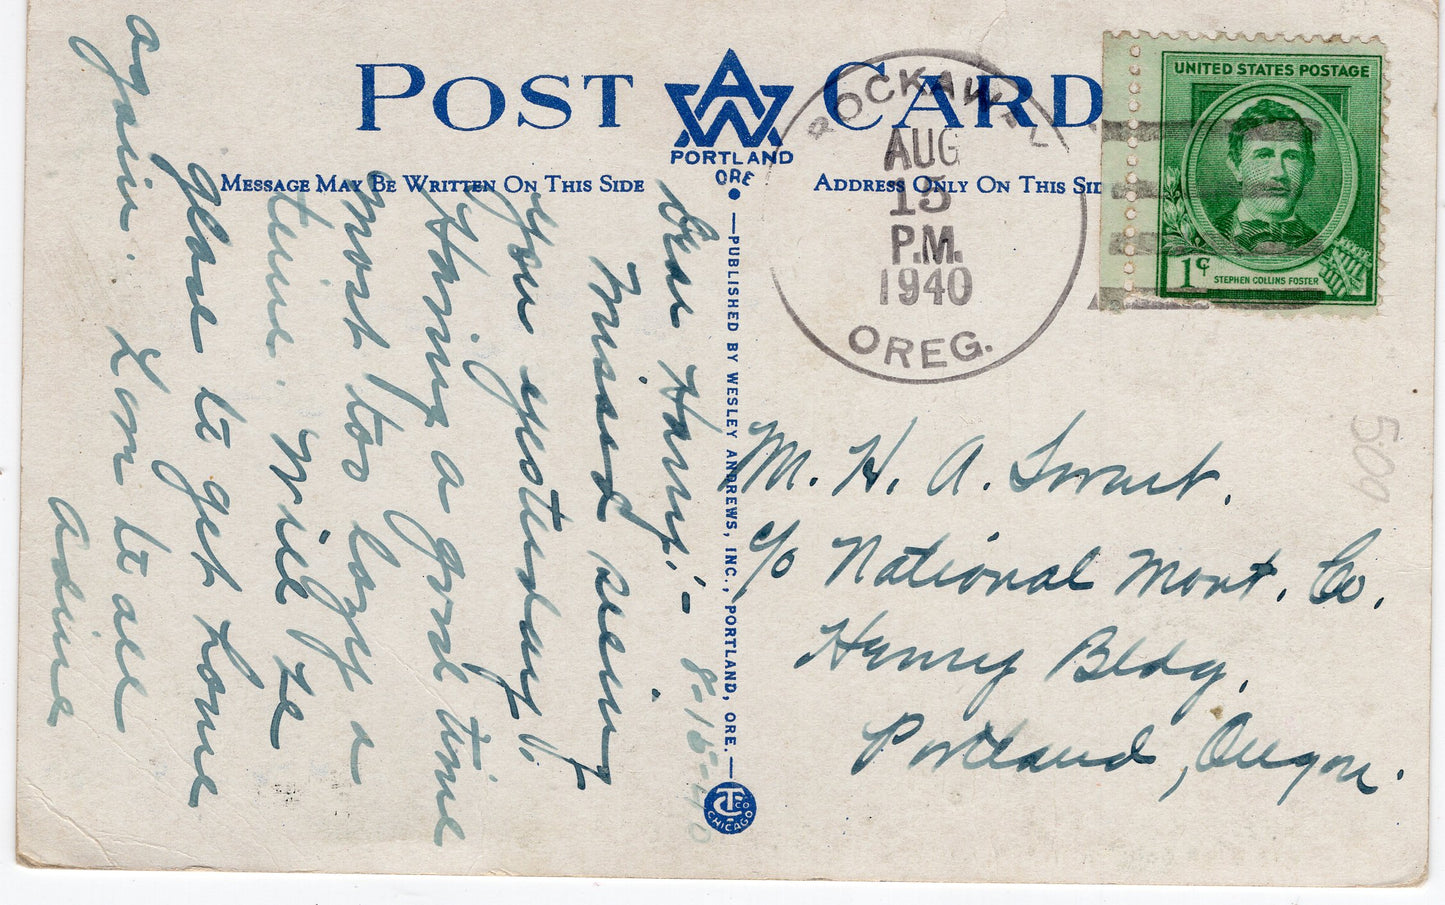 POST CARD
AW
PORTLAND
ORE
MESSAGE MAY BE WRITTEN ON THIS SIDE
ADDRESS ONLY ON THIS SID
ROCKAWAY
AUG
15
P.M.
1940
OREG.
UNITED STATES POSTAGE
1¢
STEPHEN COLLINS FOSTER
8-15-40
Dear Harry:-
Missed seeing
you yesterday.
Having a good time
most too lazy a
time. Will be
glad to get home
again. Love to all
Adine
—PUBLISHED BY WESLEY ANDREWS, INC., PORTLAND, ORE.—
CT CO.
CHICAGO
Mr. H. A. Swart.
c/o National Mort. Co.
Henry Bldg.
Portland, Oregon.
509